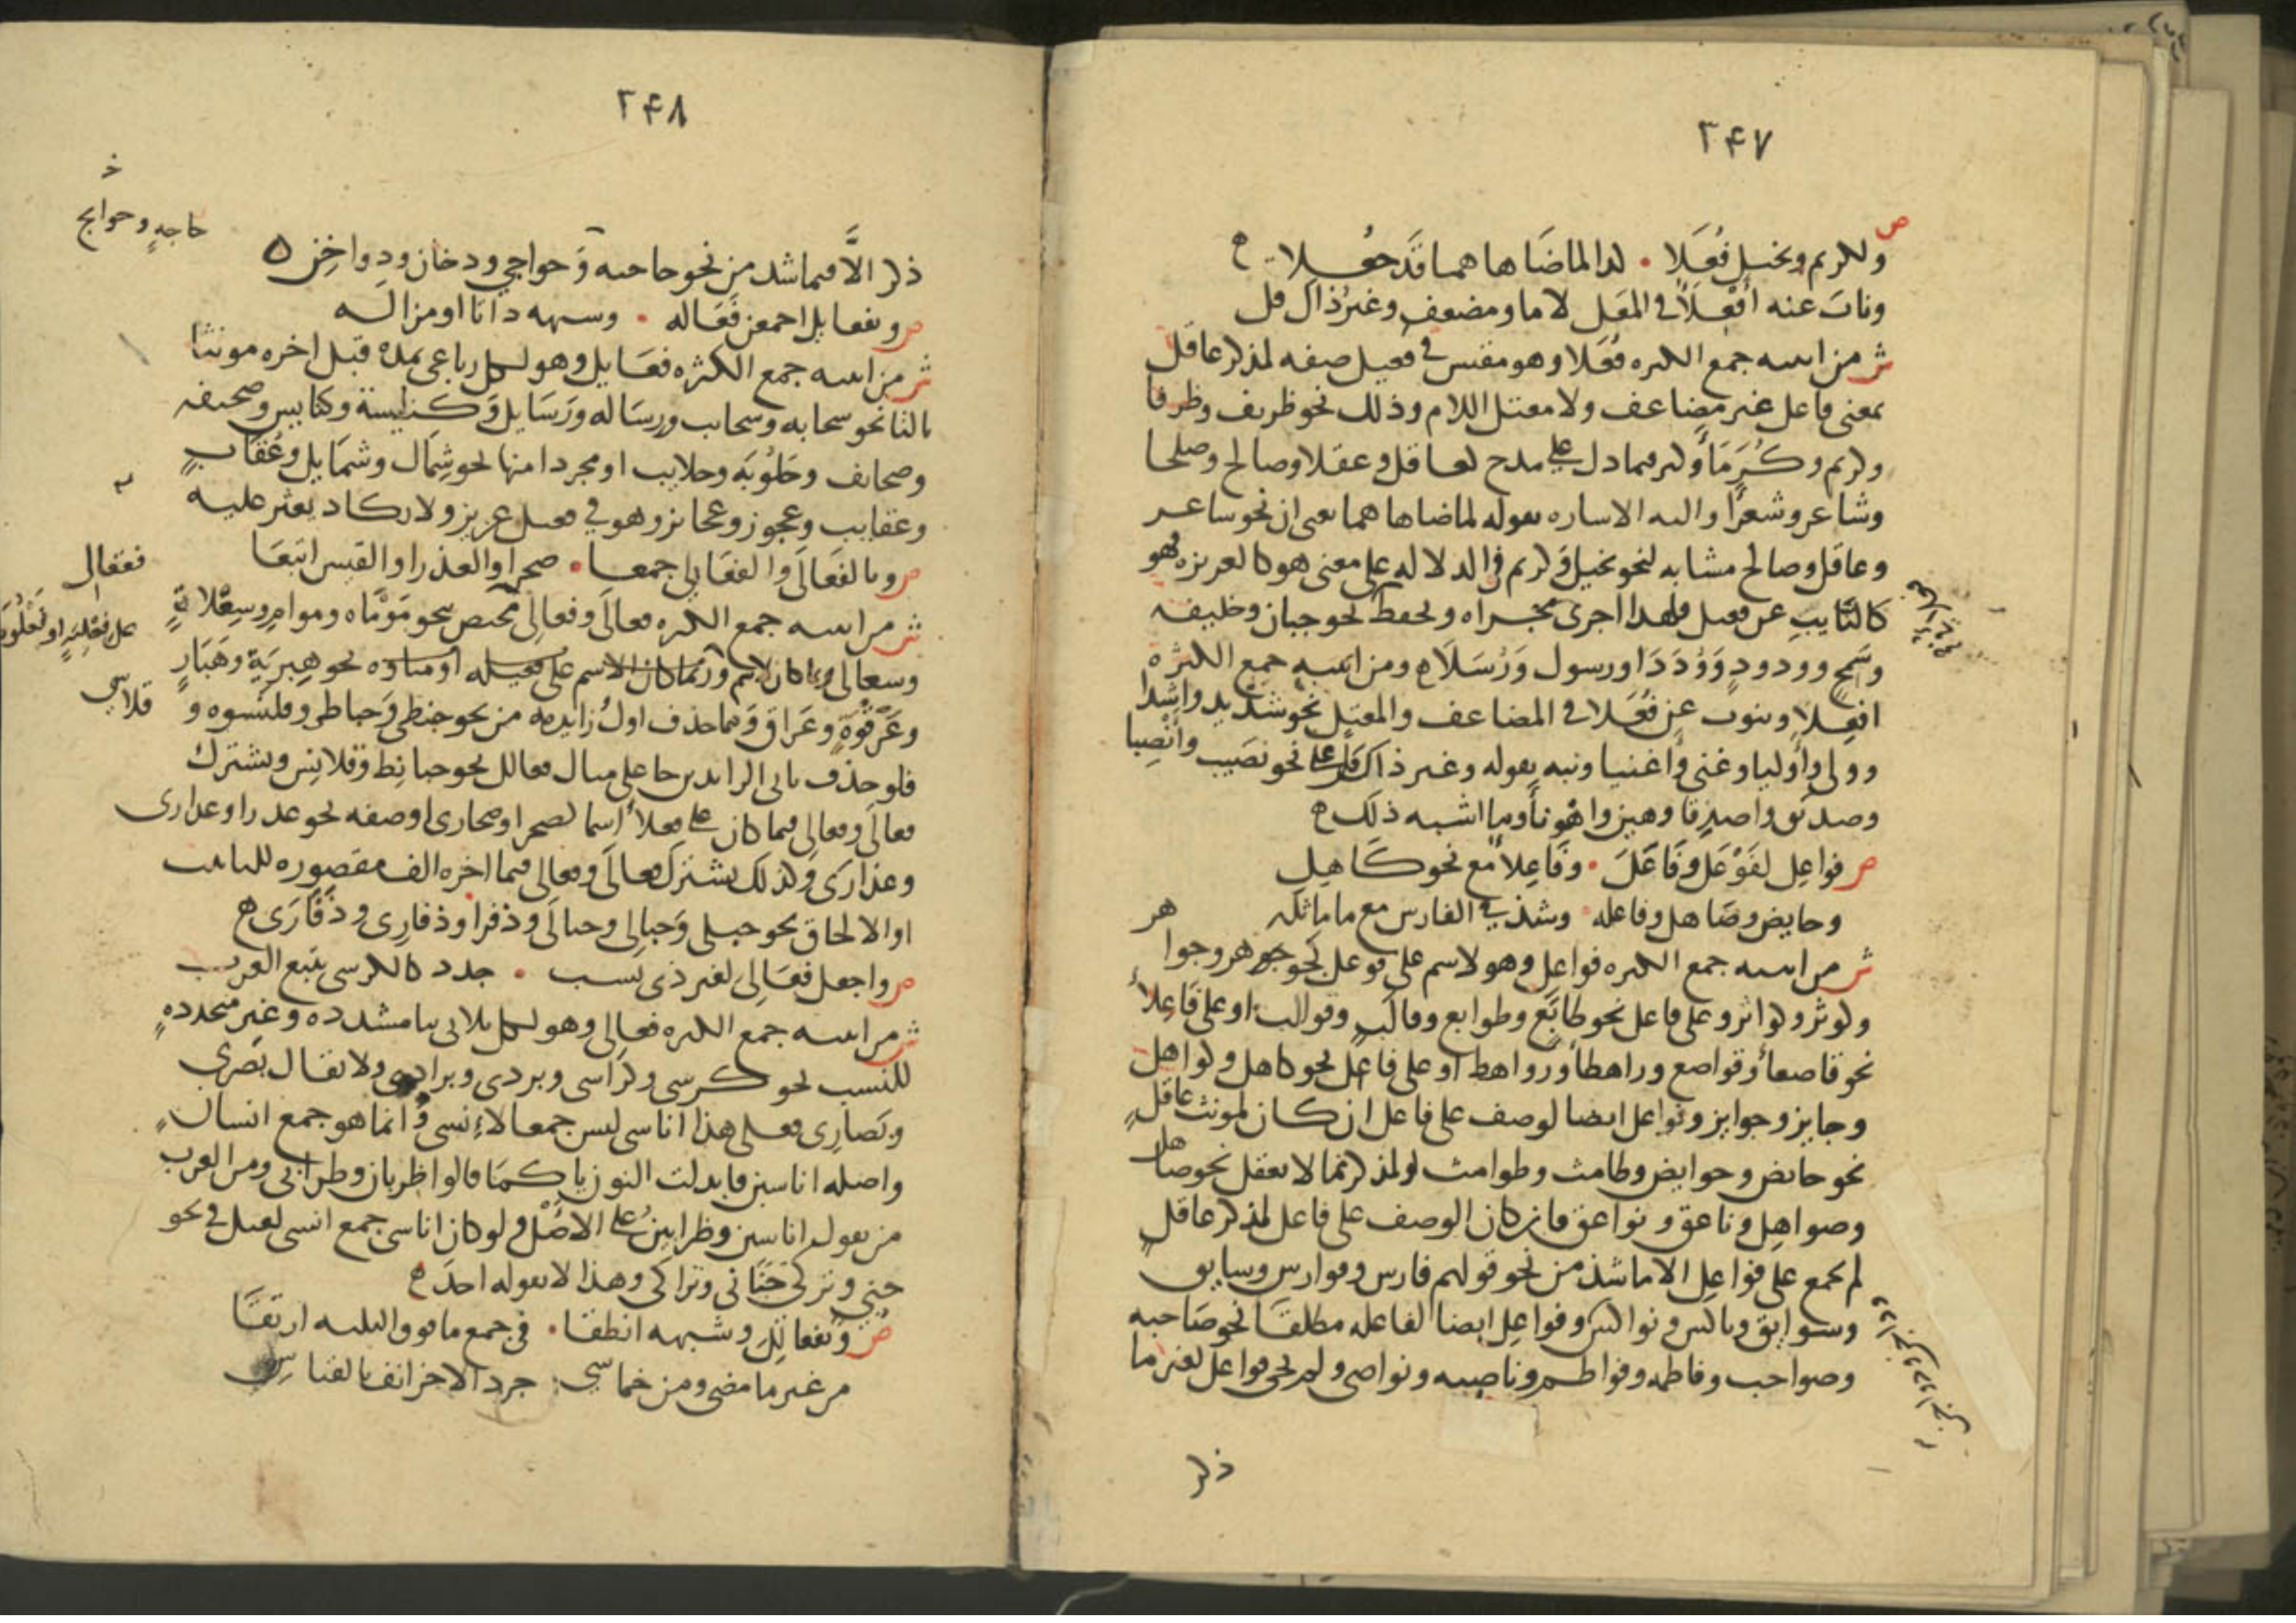 ٢٤٧
ص
ولكريم وبخيل فُعَلا • كذا لما ضاهاهما قد جُعلا ه
وناب عنه أفعلاء في المعل لاما ومضعف وغير ذاك قل
ش من ابنيه جمع الكثره فُعَلا وهو مقيس في فعيل صفه لمذكر عاقل
بمعنى فاعل غير مضاعف ولا معتل اللام وذلك نحو ظريف وظرفا
وكريم وكُرَمَاء وكثر فيما دل على مدح كعاقل وعقلا وصالح وصلحا
وشاعر وشعرا واليه الاشاره بقوله لما ضاهاهما يعني ان نحو شاعر
وعاقل وصالح مشابه لنحو بخيل وكريم في الدلاله على معنى هو كالغريزه فهو
كالنايب عن فعيل فلهذا اجرى مجراه ويحفظ نحو جبان وخليفه
وسَمِحٍ وودودٍ وَوُدَدَا ورسول وَرُسَلَا ومن ابنيه جمع الكثره
افعلا وينوب عن فُعَلا في المضاعف والمعتل نحو شديد واشدا
وولي وأوليا وغني وأغنيا ونبه بقوله وغير ذاك قل على نحو نصيب وأنصبا
وصديق واصدقا وهين واهونا وما اشبه ذلك ه
ص فواعِل لفَوْعَل وفَاعَلَ • وفَاعِلاء مع نحو كاهِلِ
وحايض وصاهل وفاعله • وشذ في الفارس مع ما ماثله
ش من ابنيه جمع الكثره فواعل وهو لاسم على فوعل نحو جوهر وجوا هر
وكوثر وكواثر وعلى فاعل نحو طابَع وطوابع وقالَبٍ وقوالب او على فَاعِلاء
نحو قاصعاء وقواصع وراهطاء ورواهط او على فاعل نحو كاهل وكواهل
وجايز وجوايز وفواعل ايضا لوصف على فاعل ان كان لمونث عاقل
نحو حائض وحوايض وطامث وطوامث او لمذكر مما لا يعقل نحو صاهل
وصواهل وناعق ونواعق فان كان الوصف على فاعل لمذكر عاقل
لم يجمع على فواعل الا ما شذ من نحو قولهم فارس وفوارس وسابق
وسوابق وناكس ونواكس وفواعل ايضا لفاعله مطلقا نحو صاحبه
وصواحب وفاطمه وفواطم وناصيه ونواصي ولم يجي فواعل لغير ما
ذكر
٢٤٨
ذكر الَّا فيما شذ من نحو حاجه وَحواجي ودخان ودواخِن ه
حاجةٍ وحوايج
ص وبفعايل اجمعن فَعَاله • وشبهه ذا تا او مزاله
ش من ابنيه جمع الكثره فعَايل وهو لكل رباعي بمدة قبل اخره مونثا
بالتا نحو سحابه وسحايب ورسَاله ورَسَايل وَكنيسة وكنايس وصحيفه
وصحايف وحَلُوبَة وحلايب او مجردا منها نحو شِمَال وشمَايل وعُقَابٍ
وعقايب وعجوز وعجايز وهو في فعيل عزيز ولا يكاد يعثر عليه
ص وبالفَعَالَى والفعَالِي جمعا • صحرا والعذرا والقيس اتبعَا
ش من ابنيه جمع الكثره فعالَى وفعالِي مختص بنحو مَوْمَاه وموامٍ وسِعْلاةٍ
وسعالي
على فعليه او فعلوه نحو هِبرِيَةٍ وهَبَارٍ
وعَرْقُوَةٍ وعَرَاقٍ وفيما حذف اول زايديه من نحو حبنطى وَحباطي وقلنسوه و قلاسي
فلو حذف ثاني الزايدين جا على مثال فعالل نحو حبانِط وقلانِس ويشترك
فعالَى وفعالِي فيما كان على فعلاء اسما كصحرا وصحارى او صفه نحو عذرا وعذارى
وعذارَى وكذلك يشترك فعالَى وفعالي فيما اخره الف مقصوره للتانيث
او الالحاق نحو حبلى وَحبالِي وحبالَى وذفرا وذفارِي وذَفَارَى ه
ص واجعل فعَالِيَّ لغير ذي نسب • جدد كالكرسي يتبع العرب
ش من ابنيه جمع الكثره فعالِيّ وهو لكل ثلاثي بيا مشدده وغير متجددةٍ
للنسب نحو كرسي وكرَاسي وبردي وبرادي ولا يقال بصري
وبَصارِي فعلى هذا اناسي ليس جمعا لاِنسي وانما هو جمع انسان
واصله اناسين فابدلت النون يا كمَا قالوا ظربان وظرابي ومن العرب
من يقول اناسين وظرابين على الاصْل ولو كان اناسي جمع انسي لقيل في نحو
جني وتركي جَنَاني وتراكي وهذا لا يقوله احدَ ه
ص وبفعالِلَ وشبهه انطقا • في جمع ما فوق الثلثه ارتقا
من غير ما مضى ومن خماسي • جرد الاخر انف بالقياسِ